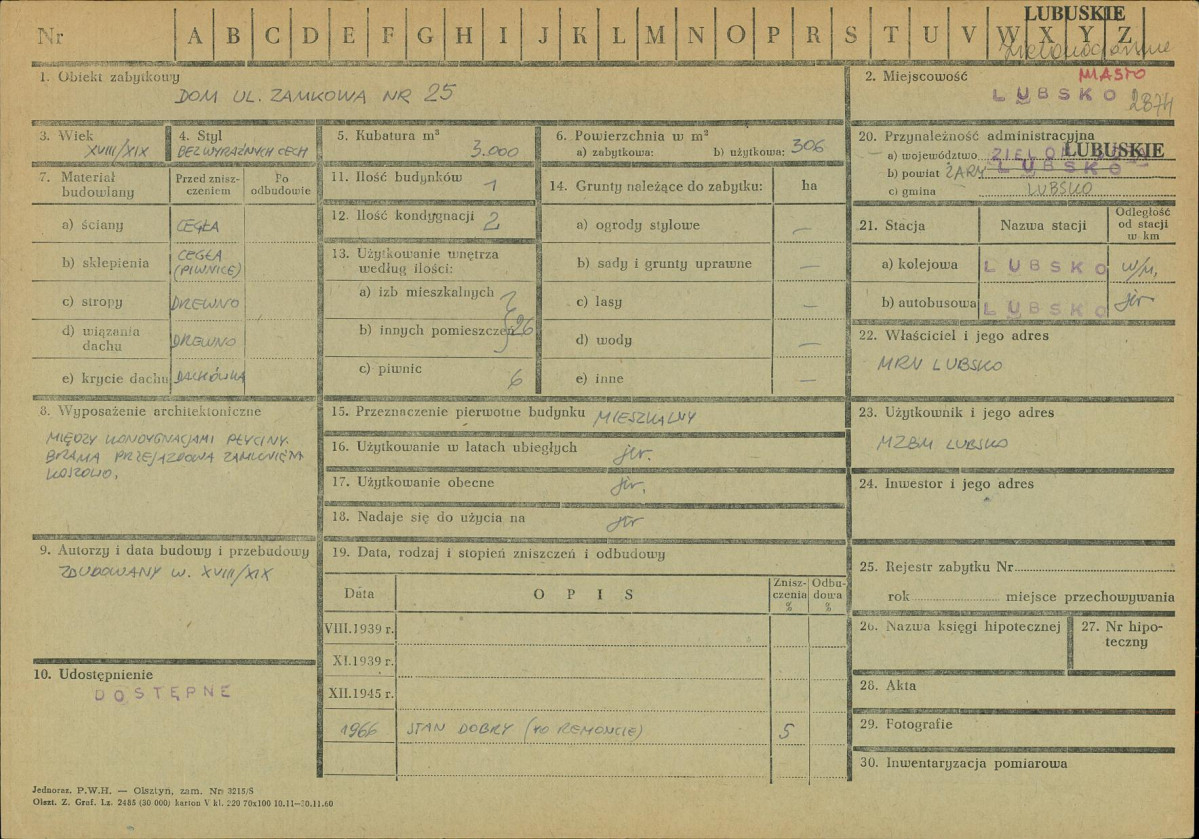 Nr A B C D E F G H I J K L M N O P R S T U V W X Y Z
LUBUSKIE
1. Obiekt zabytkowy
DOM UL. ZAMKOWA NR 25
2. Miejscowość
MIASTO
LUBSKO 2874
3. Wiek
XVIII/XIX
4. Styl
BEZ WYRAŹNYCH CECH
5. Kubatura m³
3.000
6. Powierzchnia w m³
a) zabytkowa: b) użytkowa: 306
7. Materiał budowlany
Przed zniszczeniem
Po odbudowie
a) ściany CEGŁA
b) sklepienia CEGŁA (PIWNICE)
c) stropy DREWNO
d) wiązania dachu DREWNO
e) krycie dachu DACHÓWKA
8. Wyposażenie architektoniczne
MIĘDZY KONDYGNACJAMI PŁYCINY.
BRAMA PRZEJAZDOWA ZAMKNIĘTA
KOSZOWO.
9. Autorzy i data budowy i przebudowy
ZBUDOWANY W. XVIII/XIX
10. Udostępnienie
DOSTĘPNE
11. Ilość budynków
1
12. Ilość kondygnacji
2
13. Użytkowanie wnętrza
według ilości:
a) izb mieszkalnych
b) innych pomieszczeń 26
c) piwnic 6
14. Grunty należące do zabytku: ha
a) ogrody stylowe —
b) sady i grunty uprawne —
c) lasy —
d) wody —
e) inne —
15. Przeznaczenie pierwotne budynku MIESZKALNY
16. Użytkowanie w latach ubiegłych jw.
17. Użytkowanie obecne jw.
18. Nadaje się do użycia na jw
19. Data, rodzaj i stopień zniszczeń i odbudowy
Data
OPIS
Zniszczenia %
Odbudowa %
VIII.1939 r.
XI.1939 r.
XII.1945 r.
1966 STAN DOBRY (PO REMONCIE) 5
20. Przynależność administracyjna
a) województwo LUBUSKIE
b) powiat ŻARY LUBSKO
c) gmina LUBSKO
21. Stacja
Nazwa stacji
Odległość
od stacji
w km
a) kolejowa LUBSKO w/m.
b) autobusowa LUBSKO jw
22. Właściciel i jego adres
MRN LUBSKO
23. Użytkownik i jego adres
MZBM LUBSKO
24. Inwestor i jego adres
25. Rejestr zabytku Nr
rok miejsce przechowywania
26. Nazwa księgi hipotecznej
27. Nr hipoteczny
28. Akta
29. Fotografie
30. Inwentaryzacja pomiarowa
Jednoraz. P.W.H. — Olsztyn, zam. Nr 3215/S
Olszt. Z. Graf. Lz. 2485 (30 000) karton V kl. 220 70x100 10.11—30.11.60